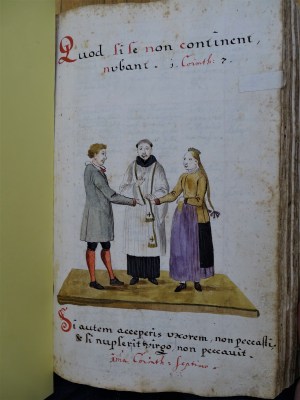 Quod si se non continent,
nubant. 1. Corinth: 7.
Si autem acceperis uxorem, non peccasti,
& si nupserit virgo, non peccavit.
Corinth: Septimo.